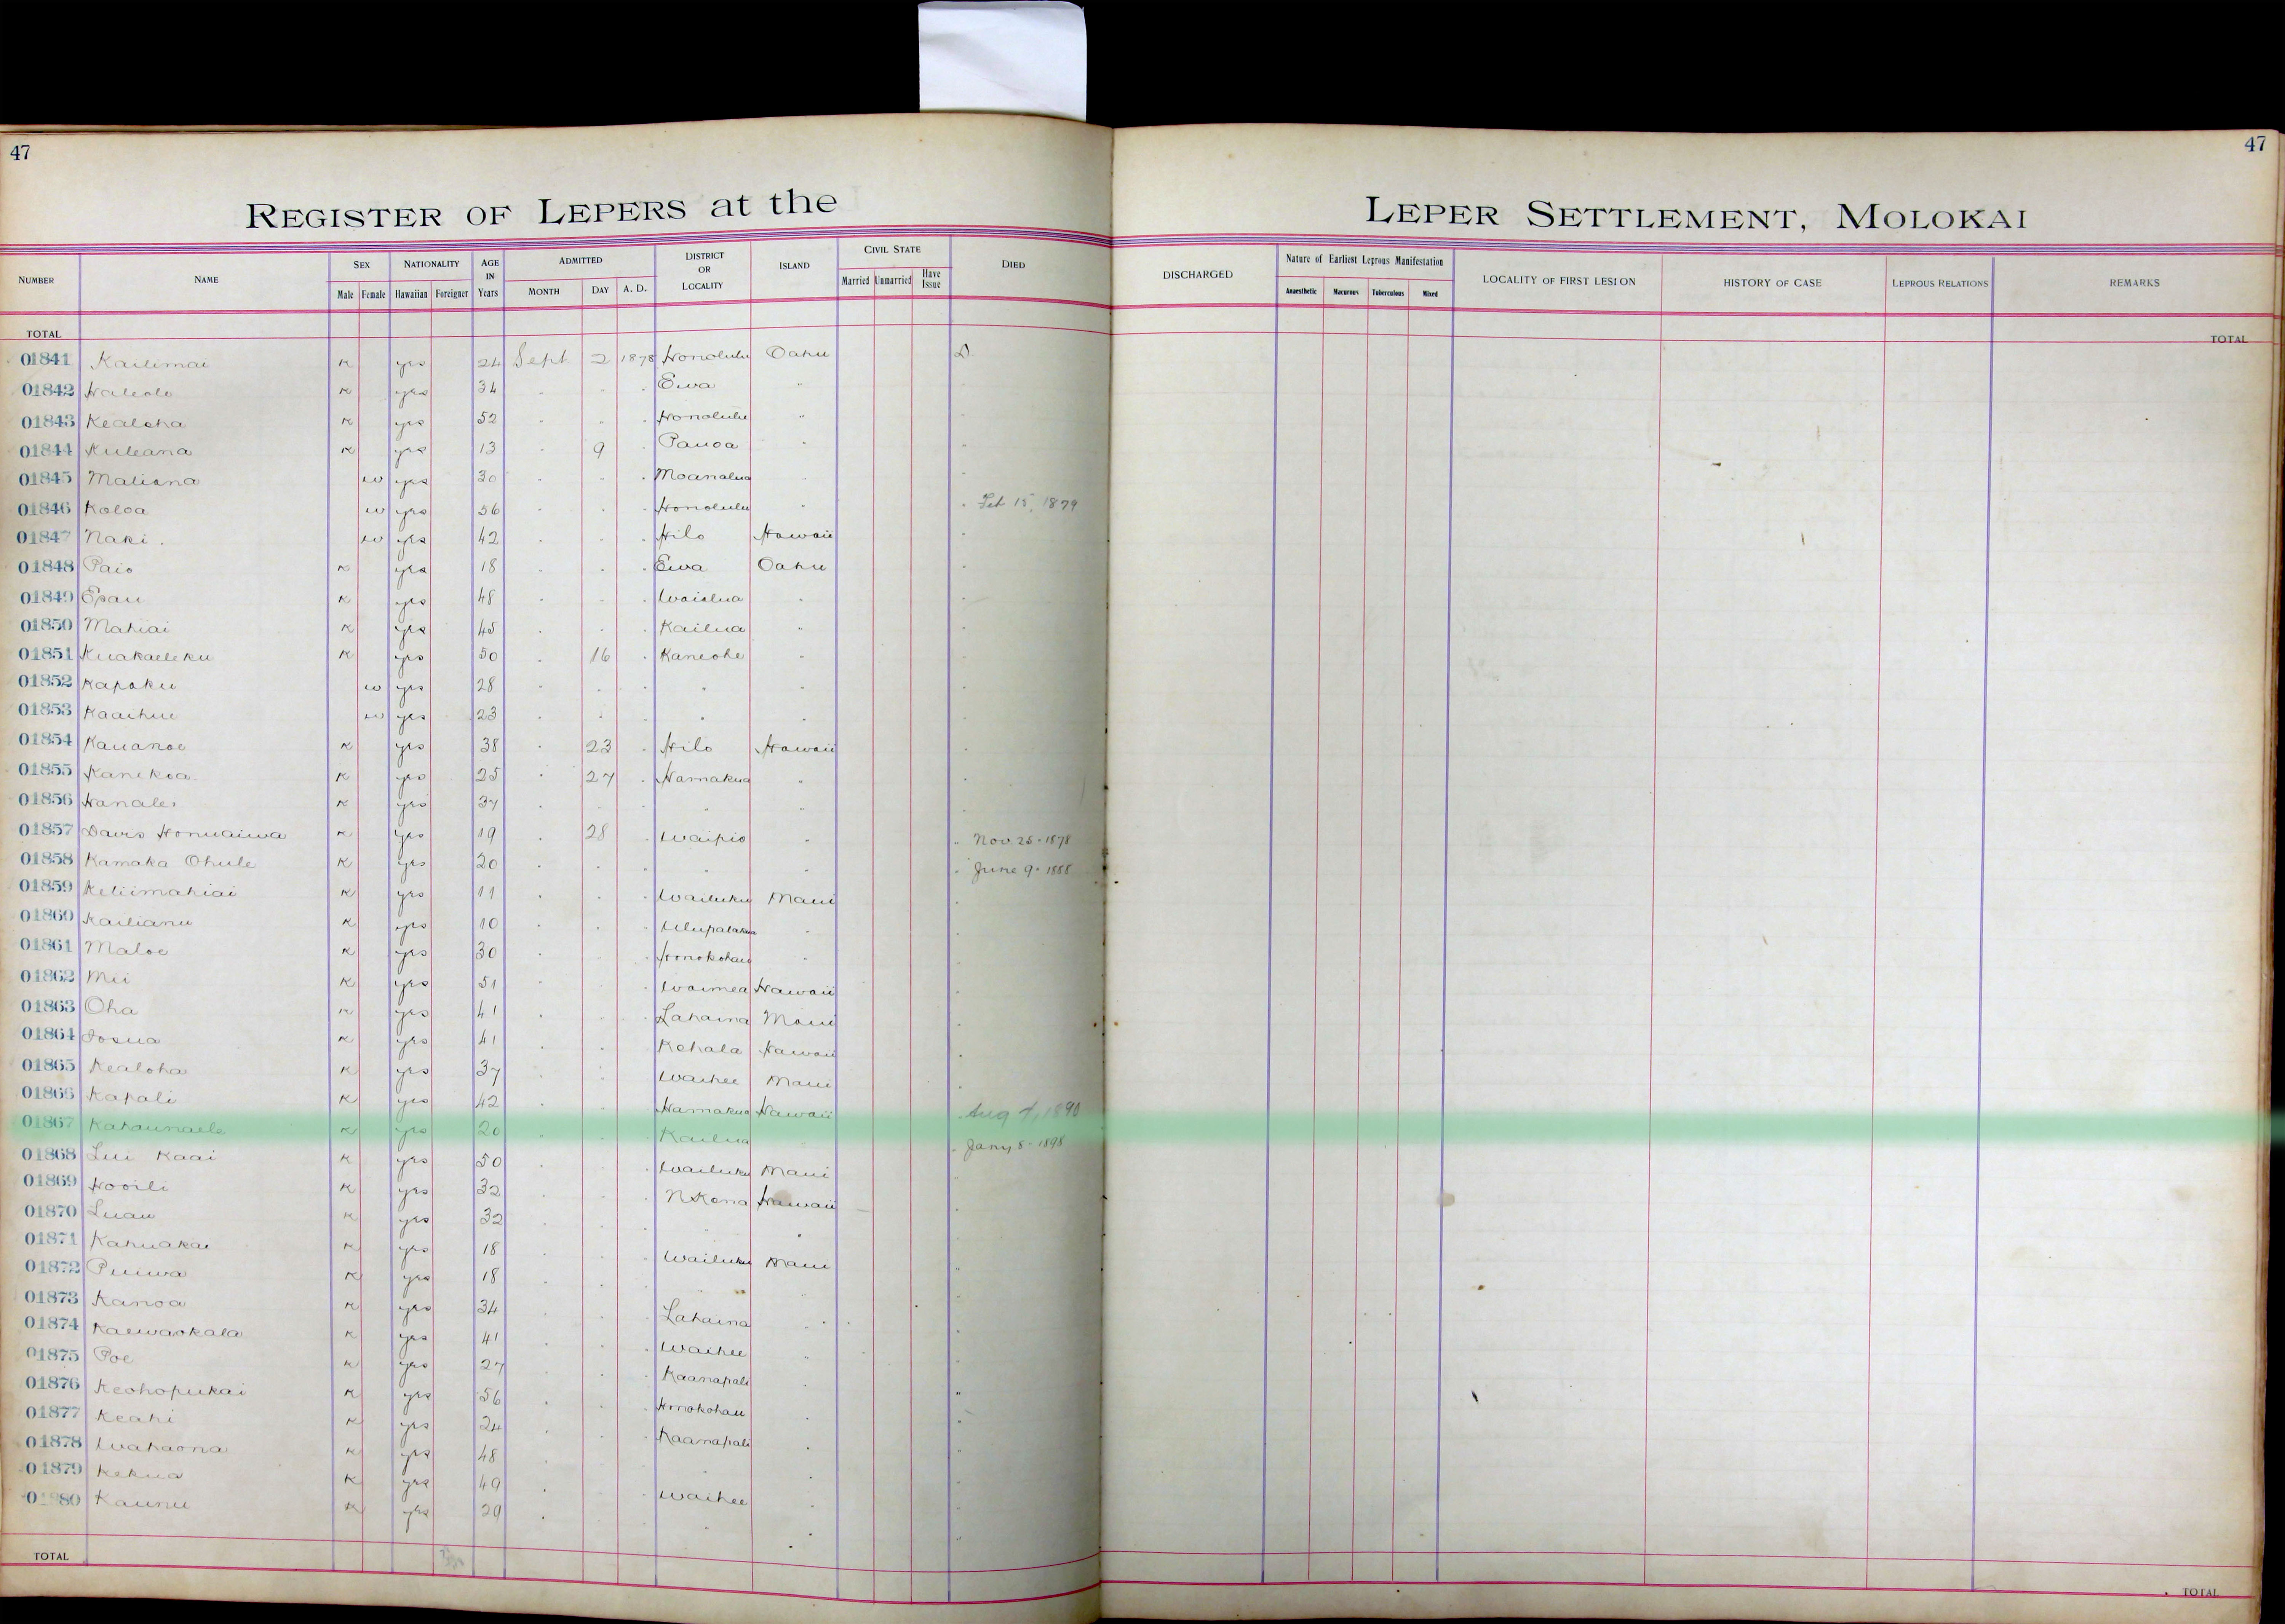 47
47
REGISTER OF LEPERS at the LEPER SETTLEMENT, MOLOKAI
NUMBER NAME SEX NATIONALITY AGE IN Years ADMITTED DISTRICT OR LOCALITY ISLAND CIVIL STATE DIED DISCHARGED Nature of Earliest Leprous Manifestation LOCALITY OF FIRST LESION HISTORY OF CASE LEPROUS RELATIONS REMARKS
Male Female Hawaiian Foreigner MONTH DAY A. D. Married Unmarried Have Issue Anaesthetic Macurous Tuberculous Mixed
TOTAL TOTAL
01841 Kailimai K yes 24 Sept 2 1878 Honolulu Oahu D
01842 Haleolo K yes 34 " " " Ewa "
01843 Kealoha K yes 52 " " " Honolulu "
01844 Kuleana K yes 13 " 9 " Pauoa " "
01845 Maliana w yes 30 " " " Moanalua " "
01846 Koloa w yes 56 " " " Honolulu " " Feb 15, 1879
01847 Naki w yes 42 " " " Hilo Hawaii "
01848 Paio K yes 18 " " " Ewa Oahu "
01849 Epau K yes 48 " " " Waialua " "
01850 Mahiai K yes 45 " " " Kailua " "
01851 Kuakaeleku K yes 50 " 16 " Kaneohe " "
01852 Kapoku w yes 28 " " " " " "
01853 Kaaihue w yes 23 " " " " " "
01854 Kauanoe K yes 38 " 23 " Hilo Hawaii "
01855 Kanekoa K yes 25 " 27 " Hamakua " "
01856 Hanalei K yes 37 " " " " " "
01857 Davis Honuaiwa K yes 19 " 28 " Waipio " " Nov 25 - 1878
01858 Kamaka Ohule K yes 20 " " " " " " June 9 - 1888
01859 Keliimahiai K yes 11 " " " Wailuku Maui "
01860 Kailianu K yes 10 " " " Ulupalakua " "
01861 Maloe K yes 30 " " " Honokohau " "
01862 Mii K yes 51 " " " Waimea Hawaii "
01863 Oha K yes 41 " " " Lahaina Maui "
01864 Iosua K yes 41 " " " Kohala Hawaii "
01865 Kealoha K yes 37 " " " Waihee Maui "
01866 Kapali K yes 42 " " " Hamakua Hawaii " Aug 7, 1890
01867 Kahaunaele K yes 20 " " " Kailua " Jany 8 - 1898
01868 Lui Kaai K yes 50 " " " Wailuku Maui "
01869 Hooili K yes 32 " " " N Kona Hawaii "
01870 Luau K yes 32 " " " " " "
01871 Kahuakai K yes 18 " " " Wailuku Maui "
01872 Puuwa K yes 18 " " " " " "
01873 Kanoa K yes 34 " " " Lahaina " "
01874 Kaewaokala K yes 41 " " " Waihee " "
01875 Poe K yes 27 " " " Kaanapali " "
01876 Keohopukai K yes 56 " " " Honokohau " "
01877 Keahi K yes 24 " " " Kaanapali " "
01878 Wahaona K yes 48 " " " " " "
01879 Kekua K yes 49 " " " Waihee " "
01880 Kaunu K yes 29 " " " " " "
TOTAL TOTAL